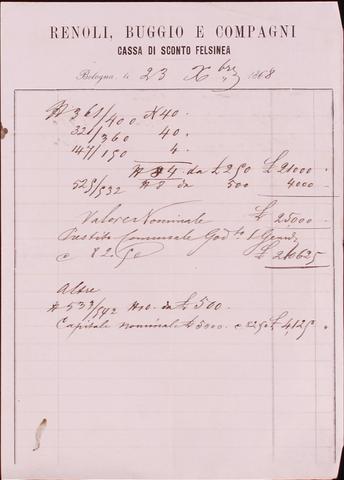 RENOLI, BUGGIO E COMPAGNI
CASSA DI SCONTO FELSINEA
Bologna, li 23 Xbre 1868
# 361/400 N 40 "
321/360 40 "
147/150 4 "
# 84 da £ 250 £ 21000 "
525/532 # 8 da 500 4000 "
Valore Nominale £ 25000 "
Prestito Comunale God.to 1 Genn
a 82.50 £ 20625
Altre
# 533/542 # 10. da £ 500.
Capitale nominale £ 5000 a 82.50 £ 4,125 "